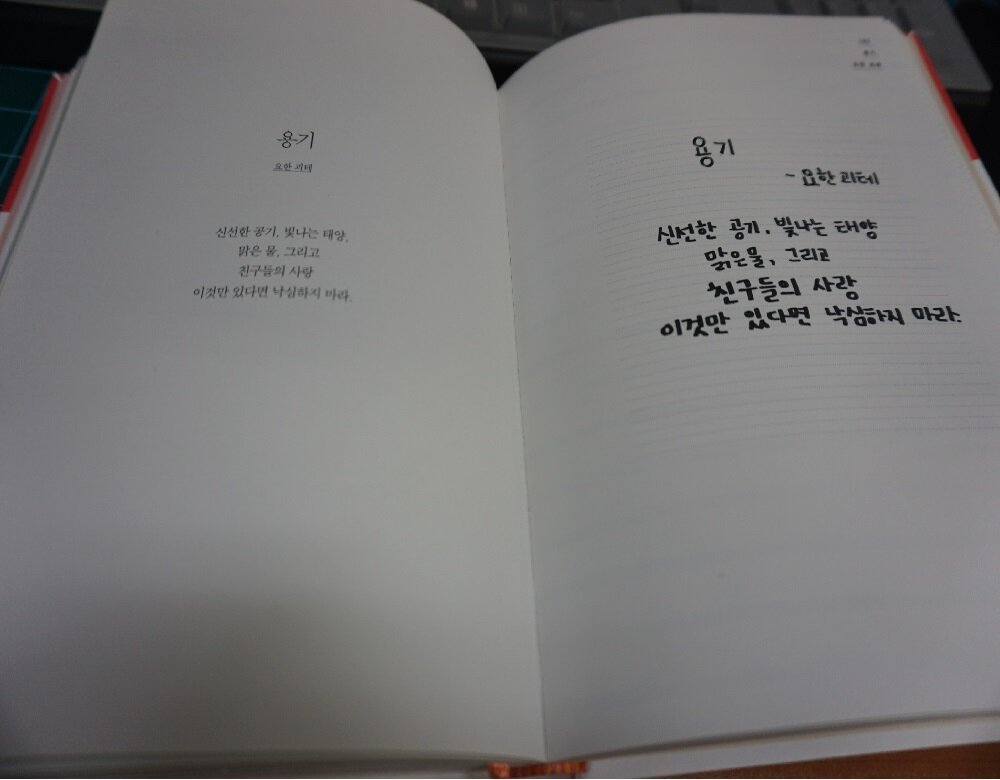 용기
요한 괴테
신선한 공기, 빛나는 태양,
맑은 물, 그리고
친구들의 사랑
이것만 있다면 낙심하지 마라.
용기
- 요한 괴테
신선한 공기, 빛나는 태양
맑은물, 그리고
친구들의 사랑
이것만 있다면 낙심하지 마라.